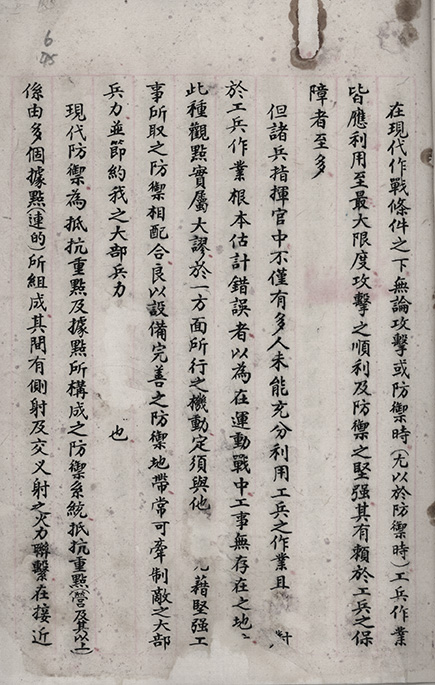 6
在現代作戰條件之下無論攻擊或防禦時(尤以於防禦時)工兵作業
皆應利用至最大限度攻擊之順利及防禦之堅強其有賴於工兵之保
障者至多
但諸兵指揮官中不僅有多人未能充分利用工兵之作業且 對
於工兵作業根本估計錯誤者以為在運動戰中工事無存在之地
此種觀點實屬大謬於一方面所行之機動定須與他 藉堅強工
事所取之防禦相配合良以設備完善之防禦地帶常可牽制敵之大部
兵力並節約我之大部兵力 也
現代防禦為抵抗重點及據點所構成之防禦系統抵抗重點(營及其以上)
係由多個據點(連的)所組成其間有側射及交义射之火力聯繫在接近